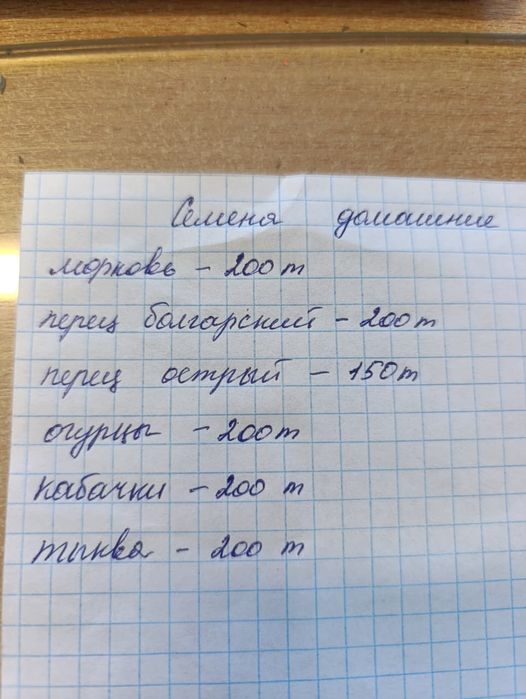 Семена домашние
морковь - 200 т
перец болгарский - 200 т
перец острый - 150 т
огурцы - 200 т
кабачки - 200 т
тыква - 200 т